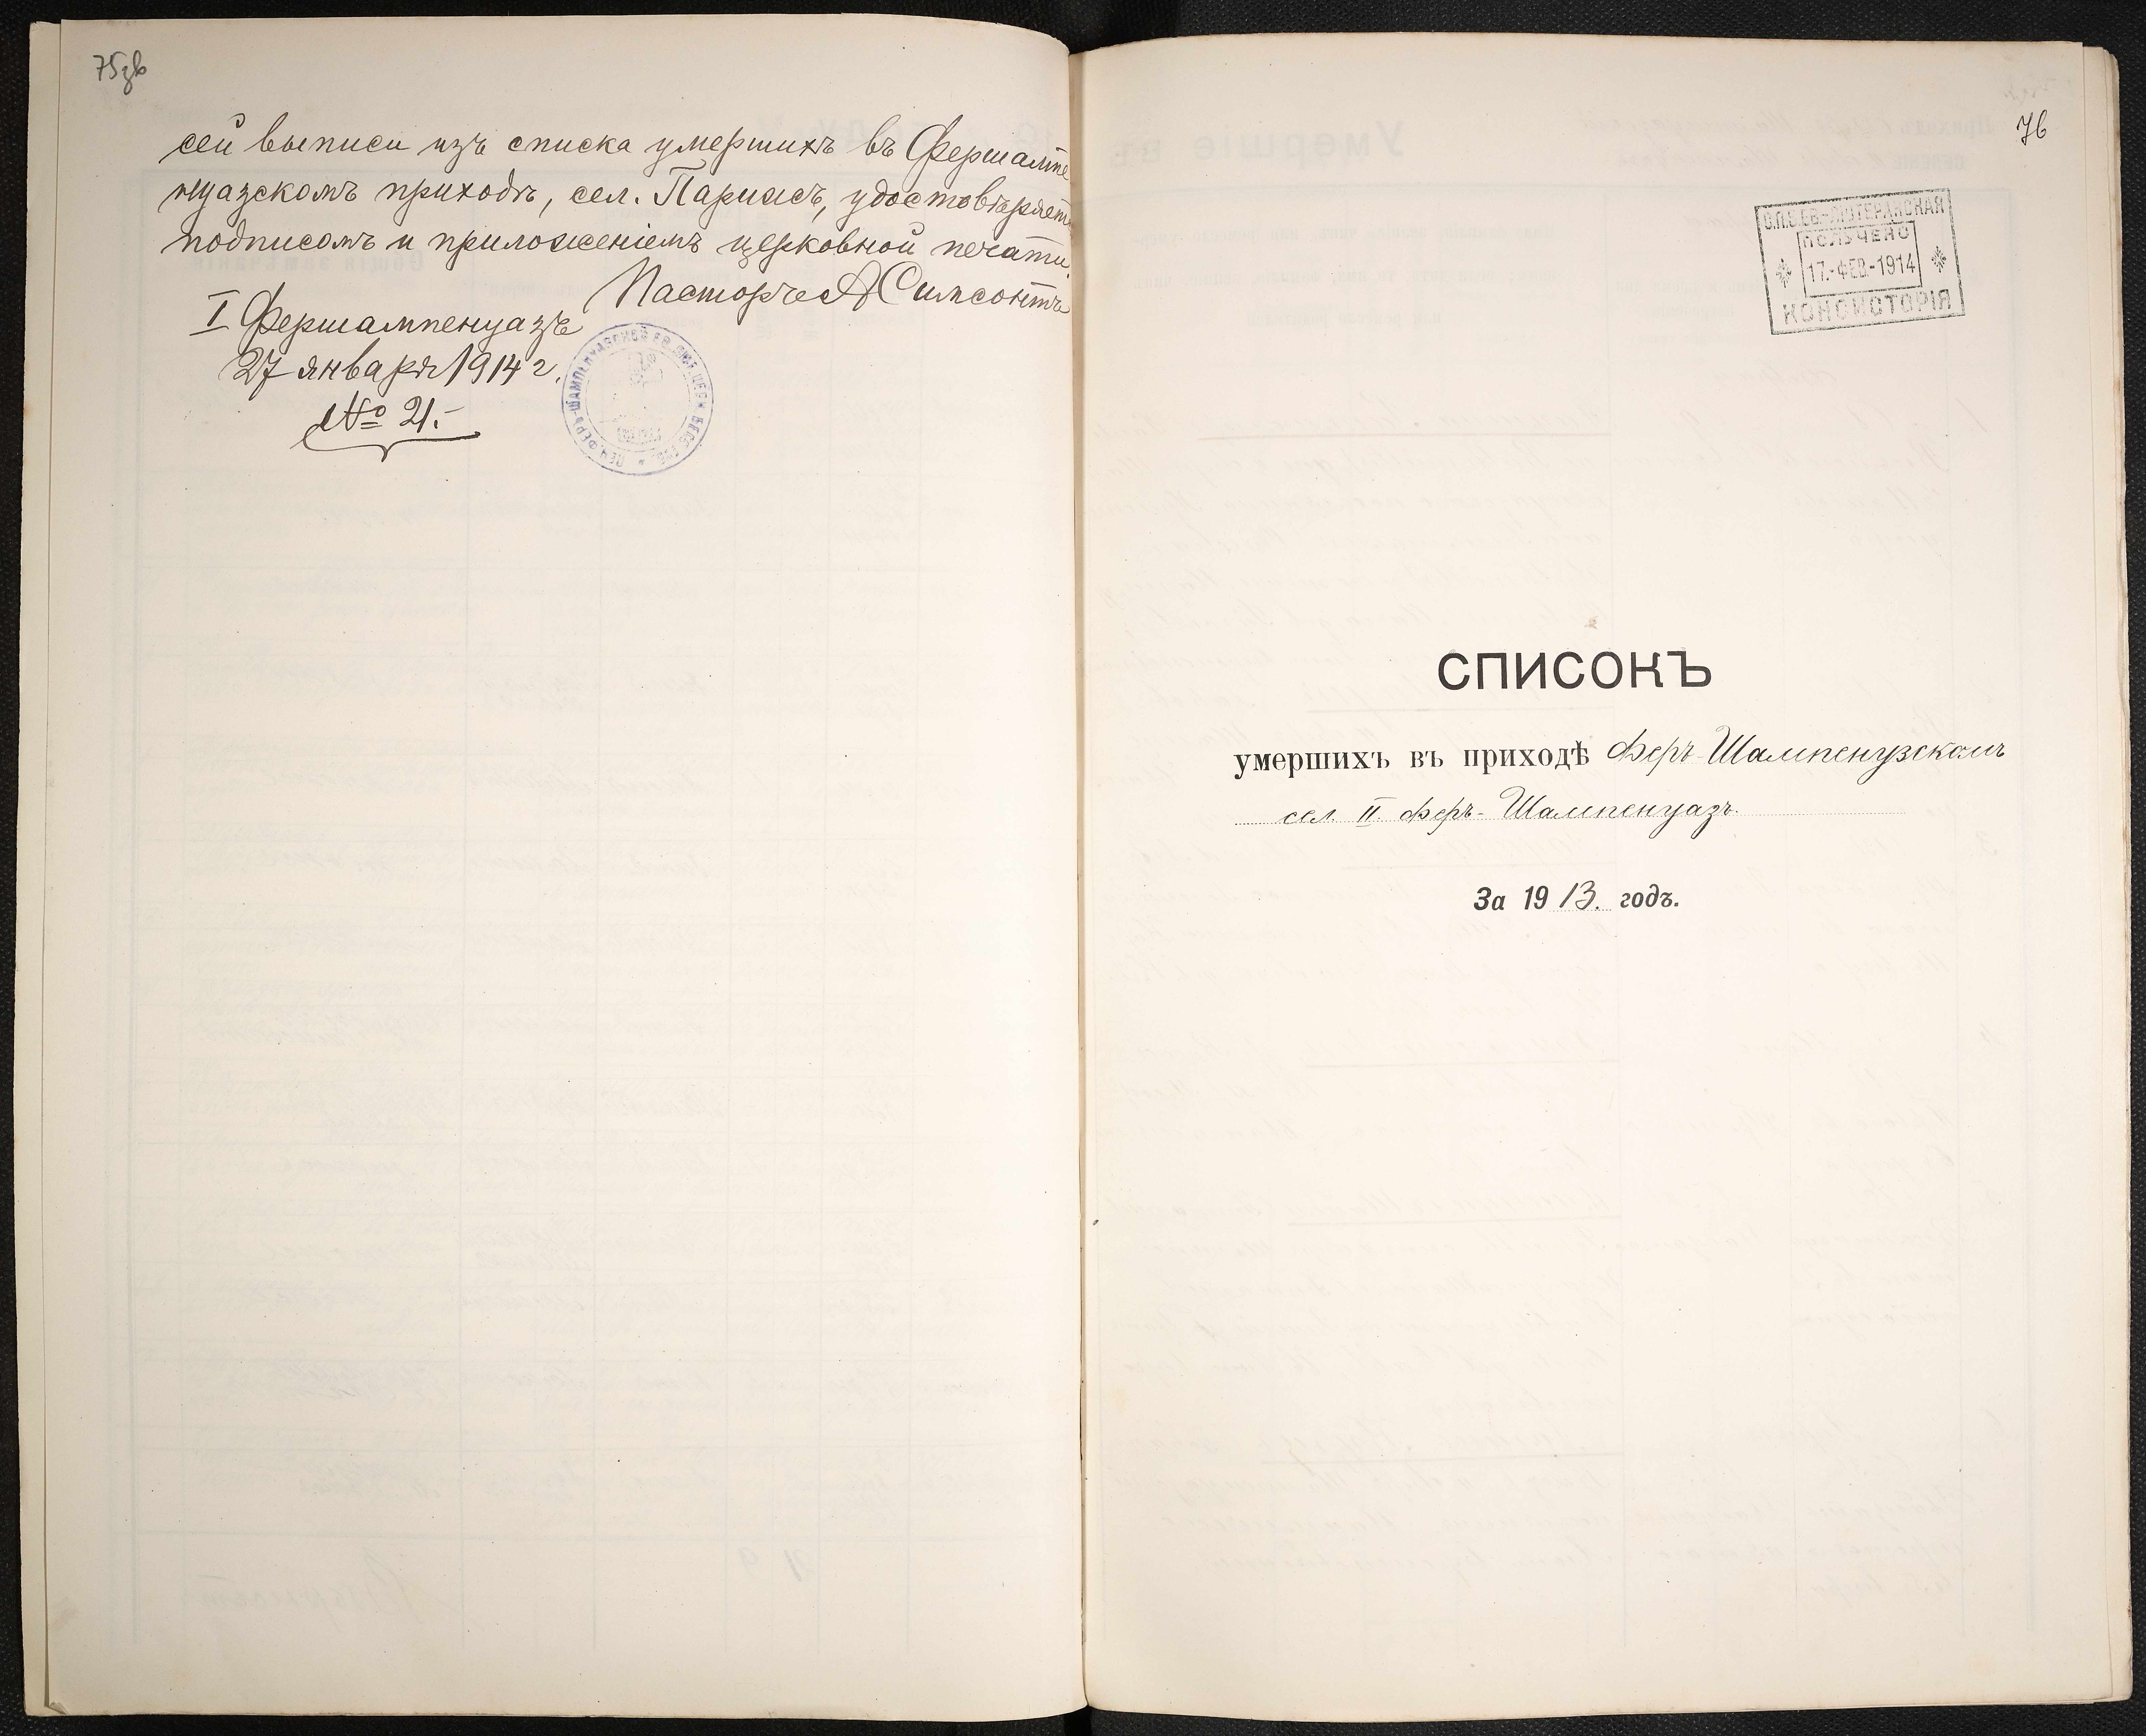 75об
сей выписи изъ списка умершихъ въ Фершампе
нуазскомъ приходѣ, сел. Парижъ, удостовѣряетъ
подписомъ и приложеніемъ церковной печати.
Пасторъ А Симсонъ
I Фершампенуазъ
27 января 1914 г.
№ 21.
76
С.П.Б. ЕВ.-ЛЮТЕРАНСКАЯ
ПОЛУЧЕНО
17.-ФЕВ.-1914
КОНСИСТОРІЯ
СПИСОКЪ
умершихъ въ приходѣ Феръ-Шампенузскомъ
сел. II. Феръ-Шампенуазъ.
За 1913. годъ.